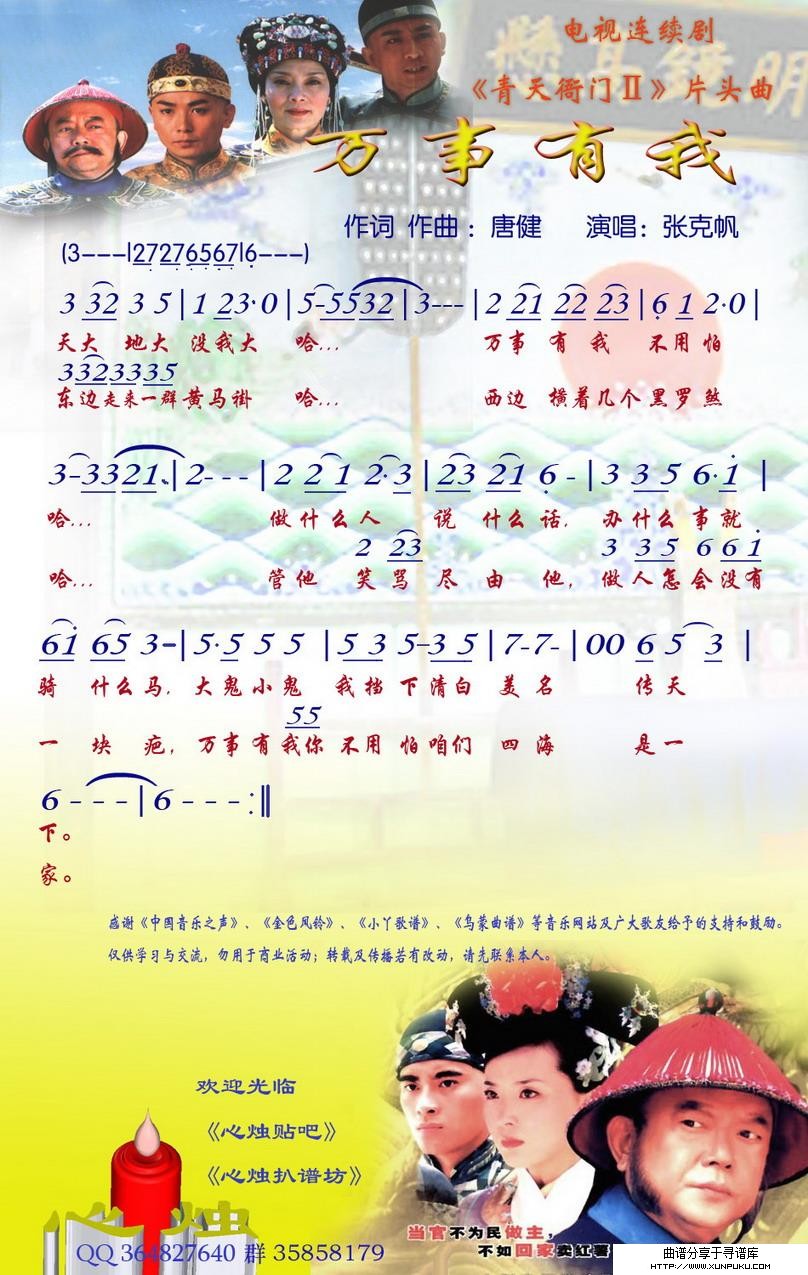 电视连续剧
《青天衙门Ⅱ》片头曲
明镜高悬
万事有我
作词 作曲：唐健 演唱：张克帆
(3---|27276567|6---)
3 32 3 5|1 23·0|5-5532|3---|2 21 22 23|6 1 2·0|
天大 地大 没我大 哈... 万事 有 我 不用怕
3323335
东边走来一群黄马褂 哈... 西边 横着几个黑罗煞
3-3321·|2---|2 2 1 2·3|23 21 6 -|3 3 5 6·1|
哈... 做什么人 说 什么话, 办什么事就
2 23 3 35 6 6 1
哈... 管他 笑骂尽由他, 做人怎会没有
61 65 3-|5·5 5 5|5 3 5-3 5|7-7-|00 6 5 3|
骑 什么马, 大鬼小鬼 我挡下清白 美名 传天
55
一 块 疤, 万事有我你不用怕咱们 四海 是一
6 - - -|6 - - - :||
下。
家。
感谢《中国音乐之声》、《金色风铃》、《小丫歌谱》、《乌蒙曲谱》等音乐网站及广大歌友给予的支持和鼓励。
仅供学习与交流，勿用于商业活动；转载及传播若有改动，请先联系本人。
欢迎光临
《心烛贴吧》
《心烛扒谱坊》
心烛
QQ 364827640 群 35858179
当官不为民做主，
不如回家卖红薯
曲谱分享于寻谱库
HTTP://WWW.XUNPUKU.COM